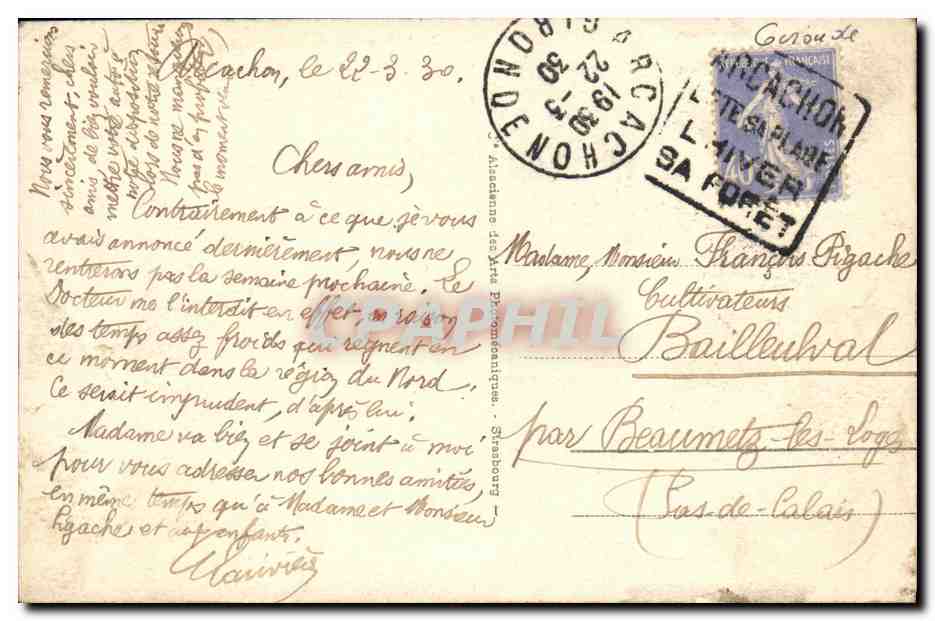 Arcachon, le 22-3-30.
Chers amis,
Contrairement à ce que je vous
avais annoncé dernièrement, nous ne
rentrerons pas la semaine prochaine. Le
Docteur me l'interdit en effet, en raison
des temps assez froids qui règnent en
ce moment dans la région du Nord.
Ce serait imprudent, d'après lui.
Madame va bien et se joint à moi
pour vous adresser nos bonnes amitiés,
en même temps qu'à Madame et Monsieur
Pigache et aux enfants.
Nous vous remercions
sincèrement, chers
amis, de bien vouloir
mettre votre auto à
notre disposition
lors de notre retour
Nous ne manquerons
pas d'en profiter
le moment
Cie Alsacienne des Arts Photomécaniques. - Strasbourg
Gironde
REPUBLIQUE FRANÇAISE
40
ARCACHON
GIRONDE
22-3
1930
ARCACHON
L'ETE SA PLAGE
L'HIVER
SA FORET
Madame, Monsieur François Pigache
Cultivateurs
Bailleulval
par Beaumetz-les-Loges
(Pas-de-Calais)
CPAPHIL